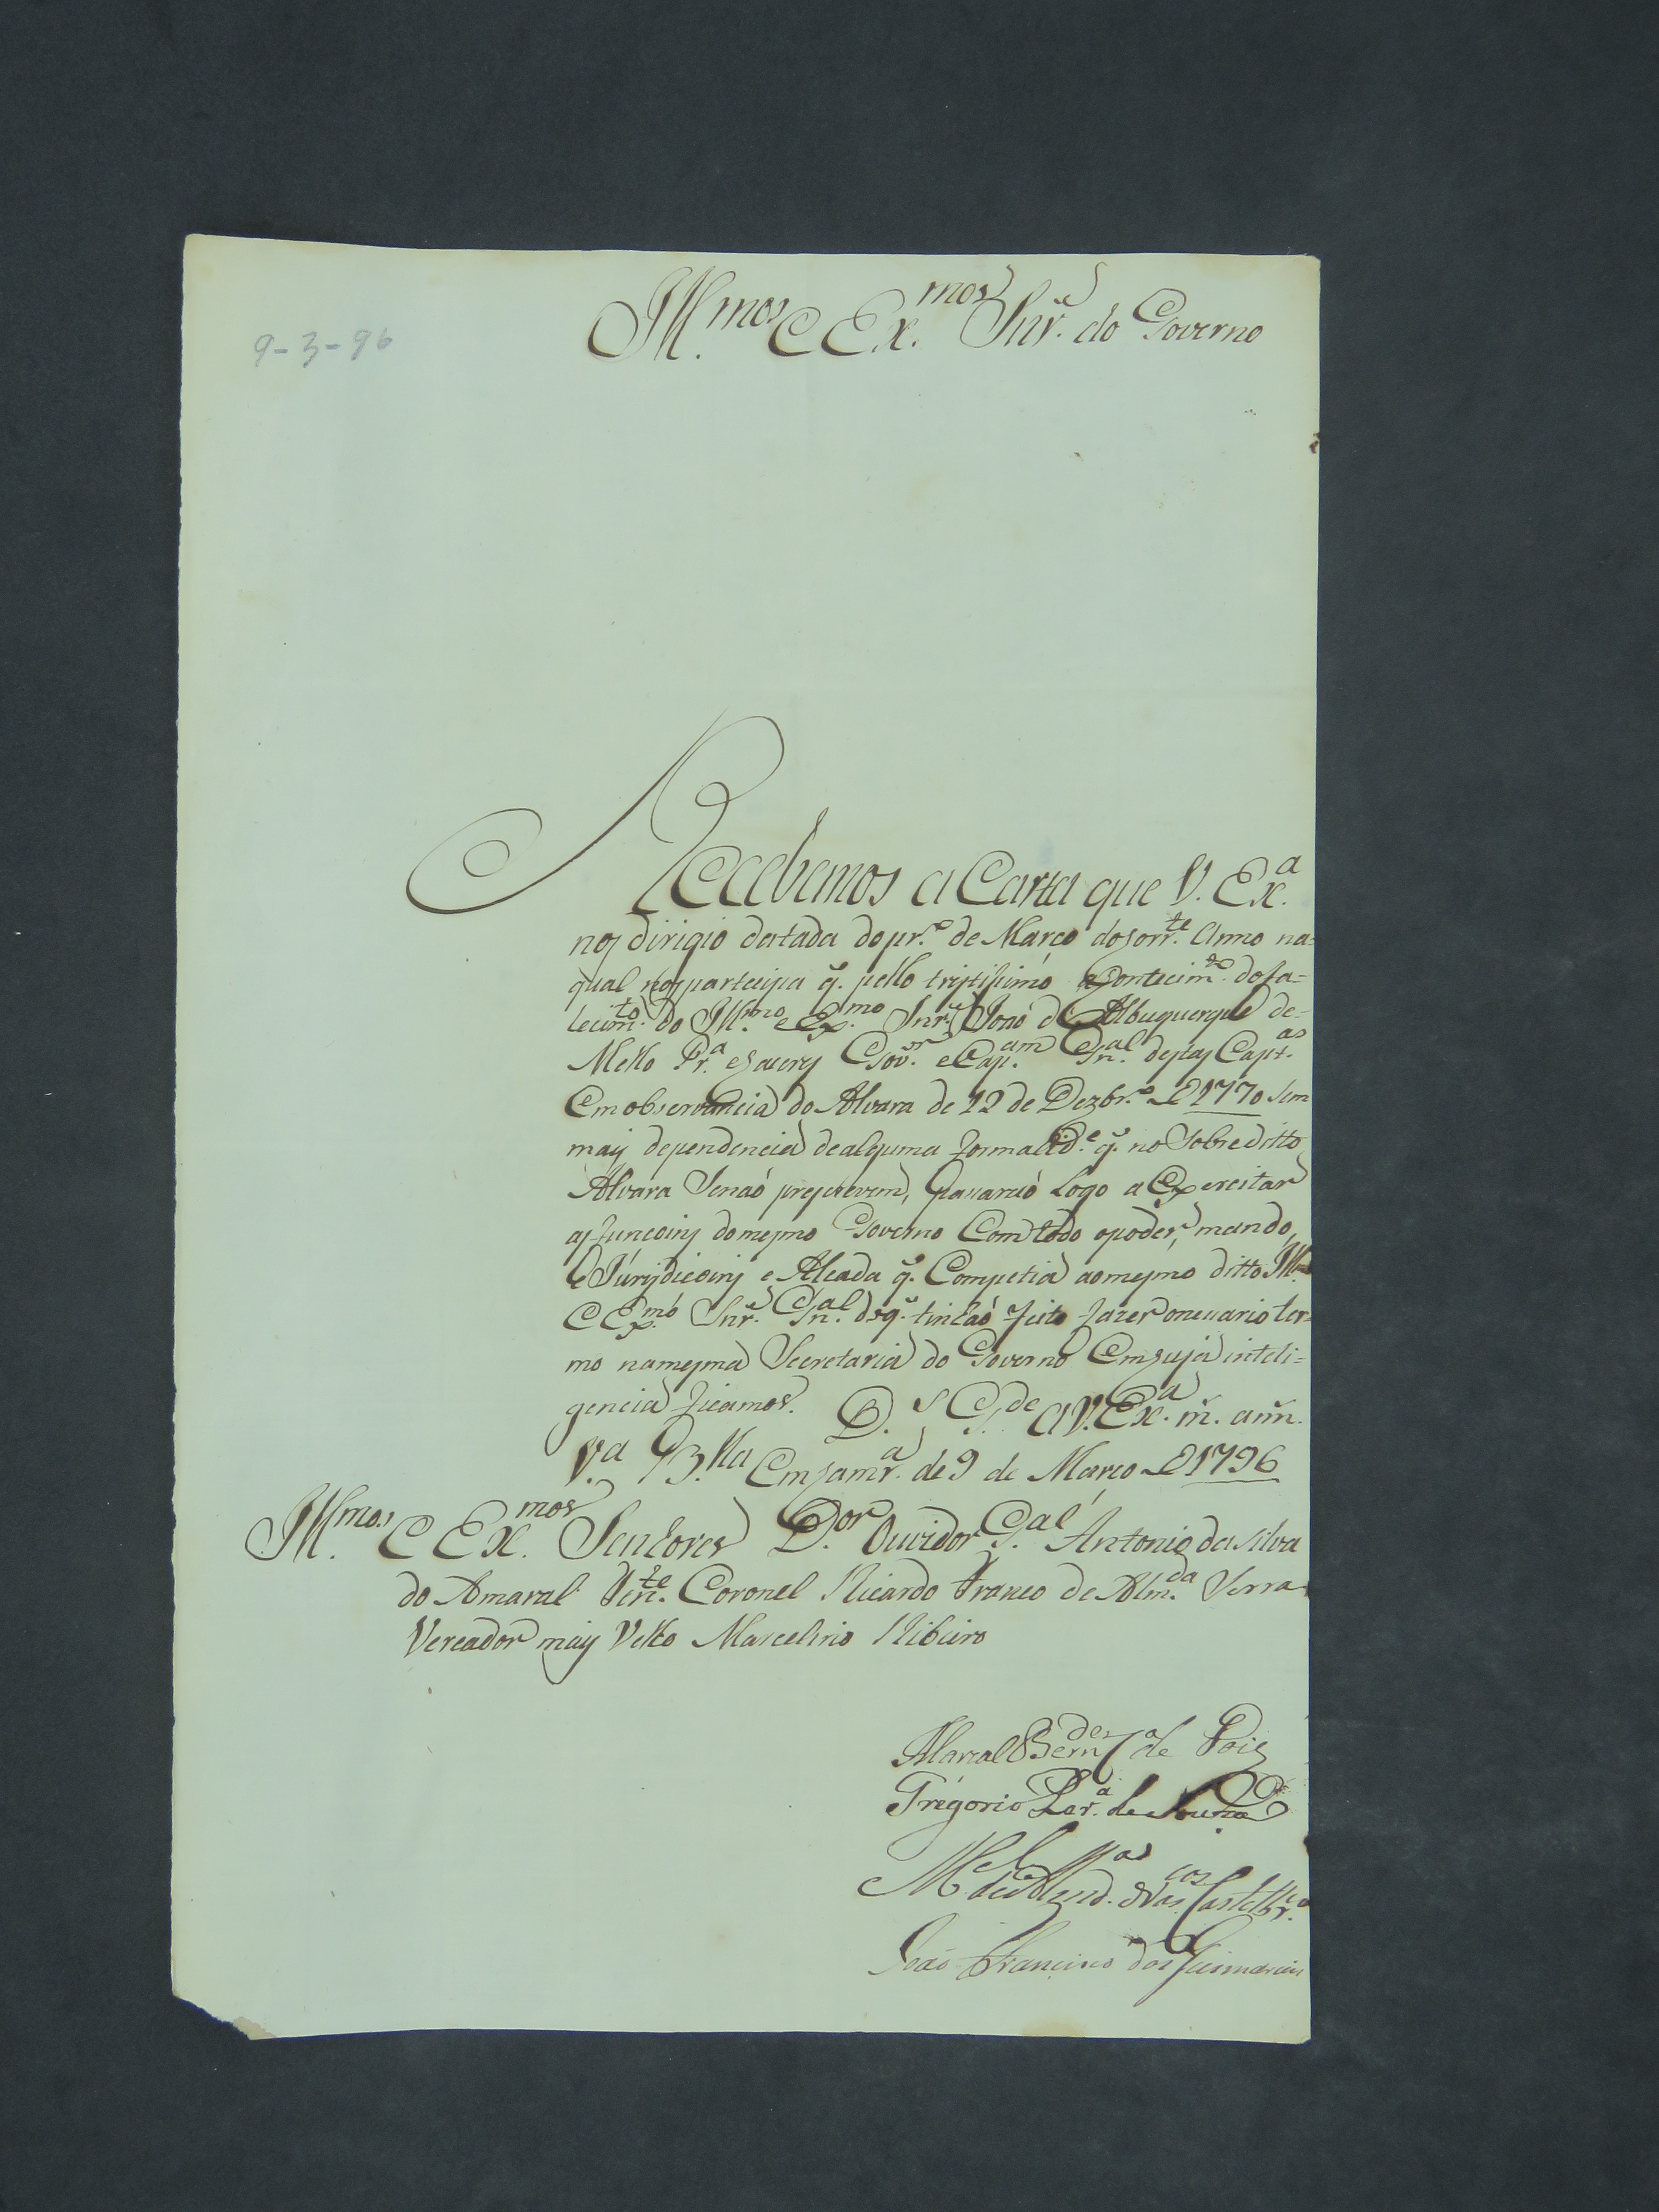 9-3-96
Ill.mos e Ex.mos Snr.s do Governo
Recebemos a Carta que V. Ex.a
nos dirigio datada do pr.o de Março do corr.te Anno na-
qual nos partecipa q. pello tristisimo acontecim.to do fa-
lecim.to do Ill.mo e Ex.mo Snr. Joaó de Albuquerque de-
Mello Pr.a e Caceres Gov.or e Cap.am Gn.al destas Capt.as
Em observancia do Alvara de 12 de Dezbr.o de 1770 sem
mais dependencia de alguma formalid.e q. no Sobreditto
Alvara Senaó prescrevem, Passaraó Logo a Exercitar
as funcoins do mesmo Governo Com todo o poder, mando,
e Jurisdicoins e Alcada q. Competia ao mesmo ditto Ill.mo
e Ex.mo Snr. Gn.al do q. tinhaó feito fazer o necessario ter-
mo na mesma Secretaria do Governo Em cuja inteli-
gencia ficamos. D.s G.de a V. Ex.a m. ann.
V.a B.lla Em camr.a de 9 de Março de 1796
Ill.mos e Ex.mos Senhores D.or Ouvidor G.al Antonio da Silva
do Amaral Ten.te Coronel Ricardo Franco de Alm.da Serra
Vereador mais Velho Marcelino Ribeiro
Gregorio Per.a de Souza
João Francisco dos Guimarains